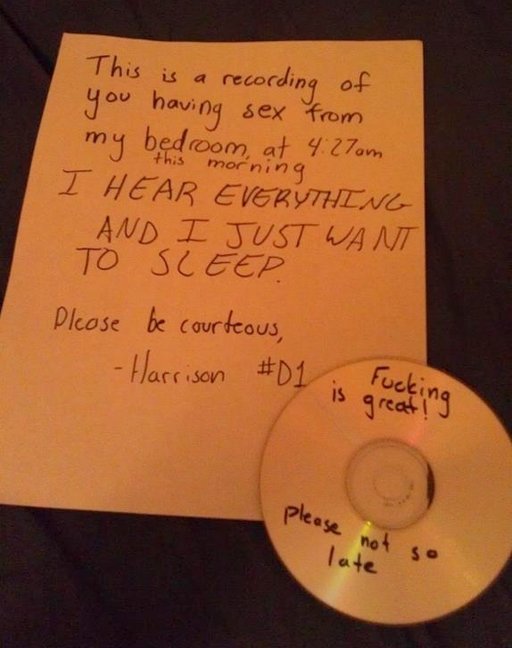 This is a recording of
you having sex from
my bedroom, at 4:27am
this morning
I HEAR EVERYTHING
AND I JUST WANT
TO SLEEP.
Please be courteous,
-Harrison #D1
Fucking
is great!
please not so
late